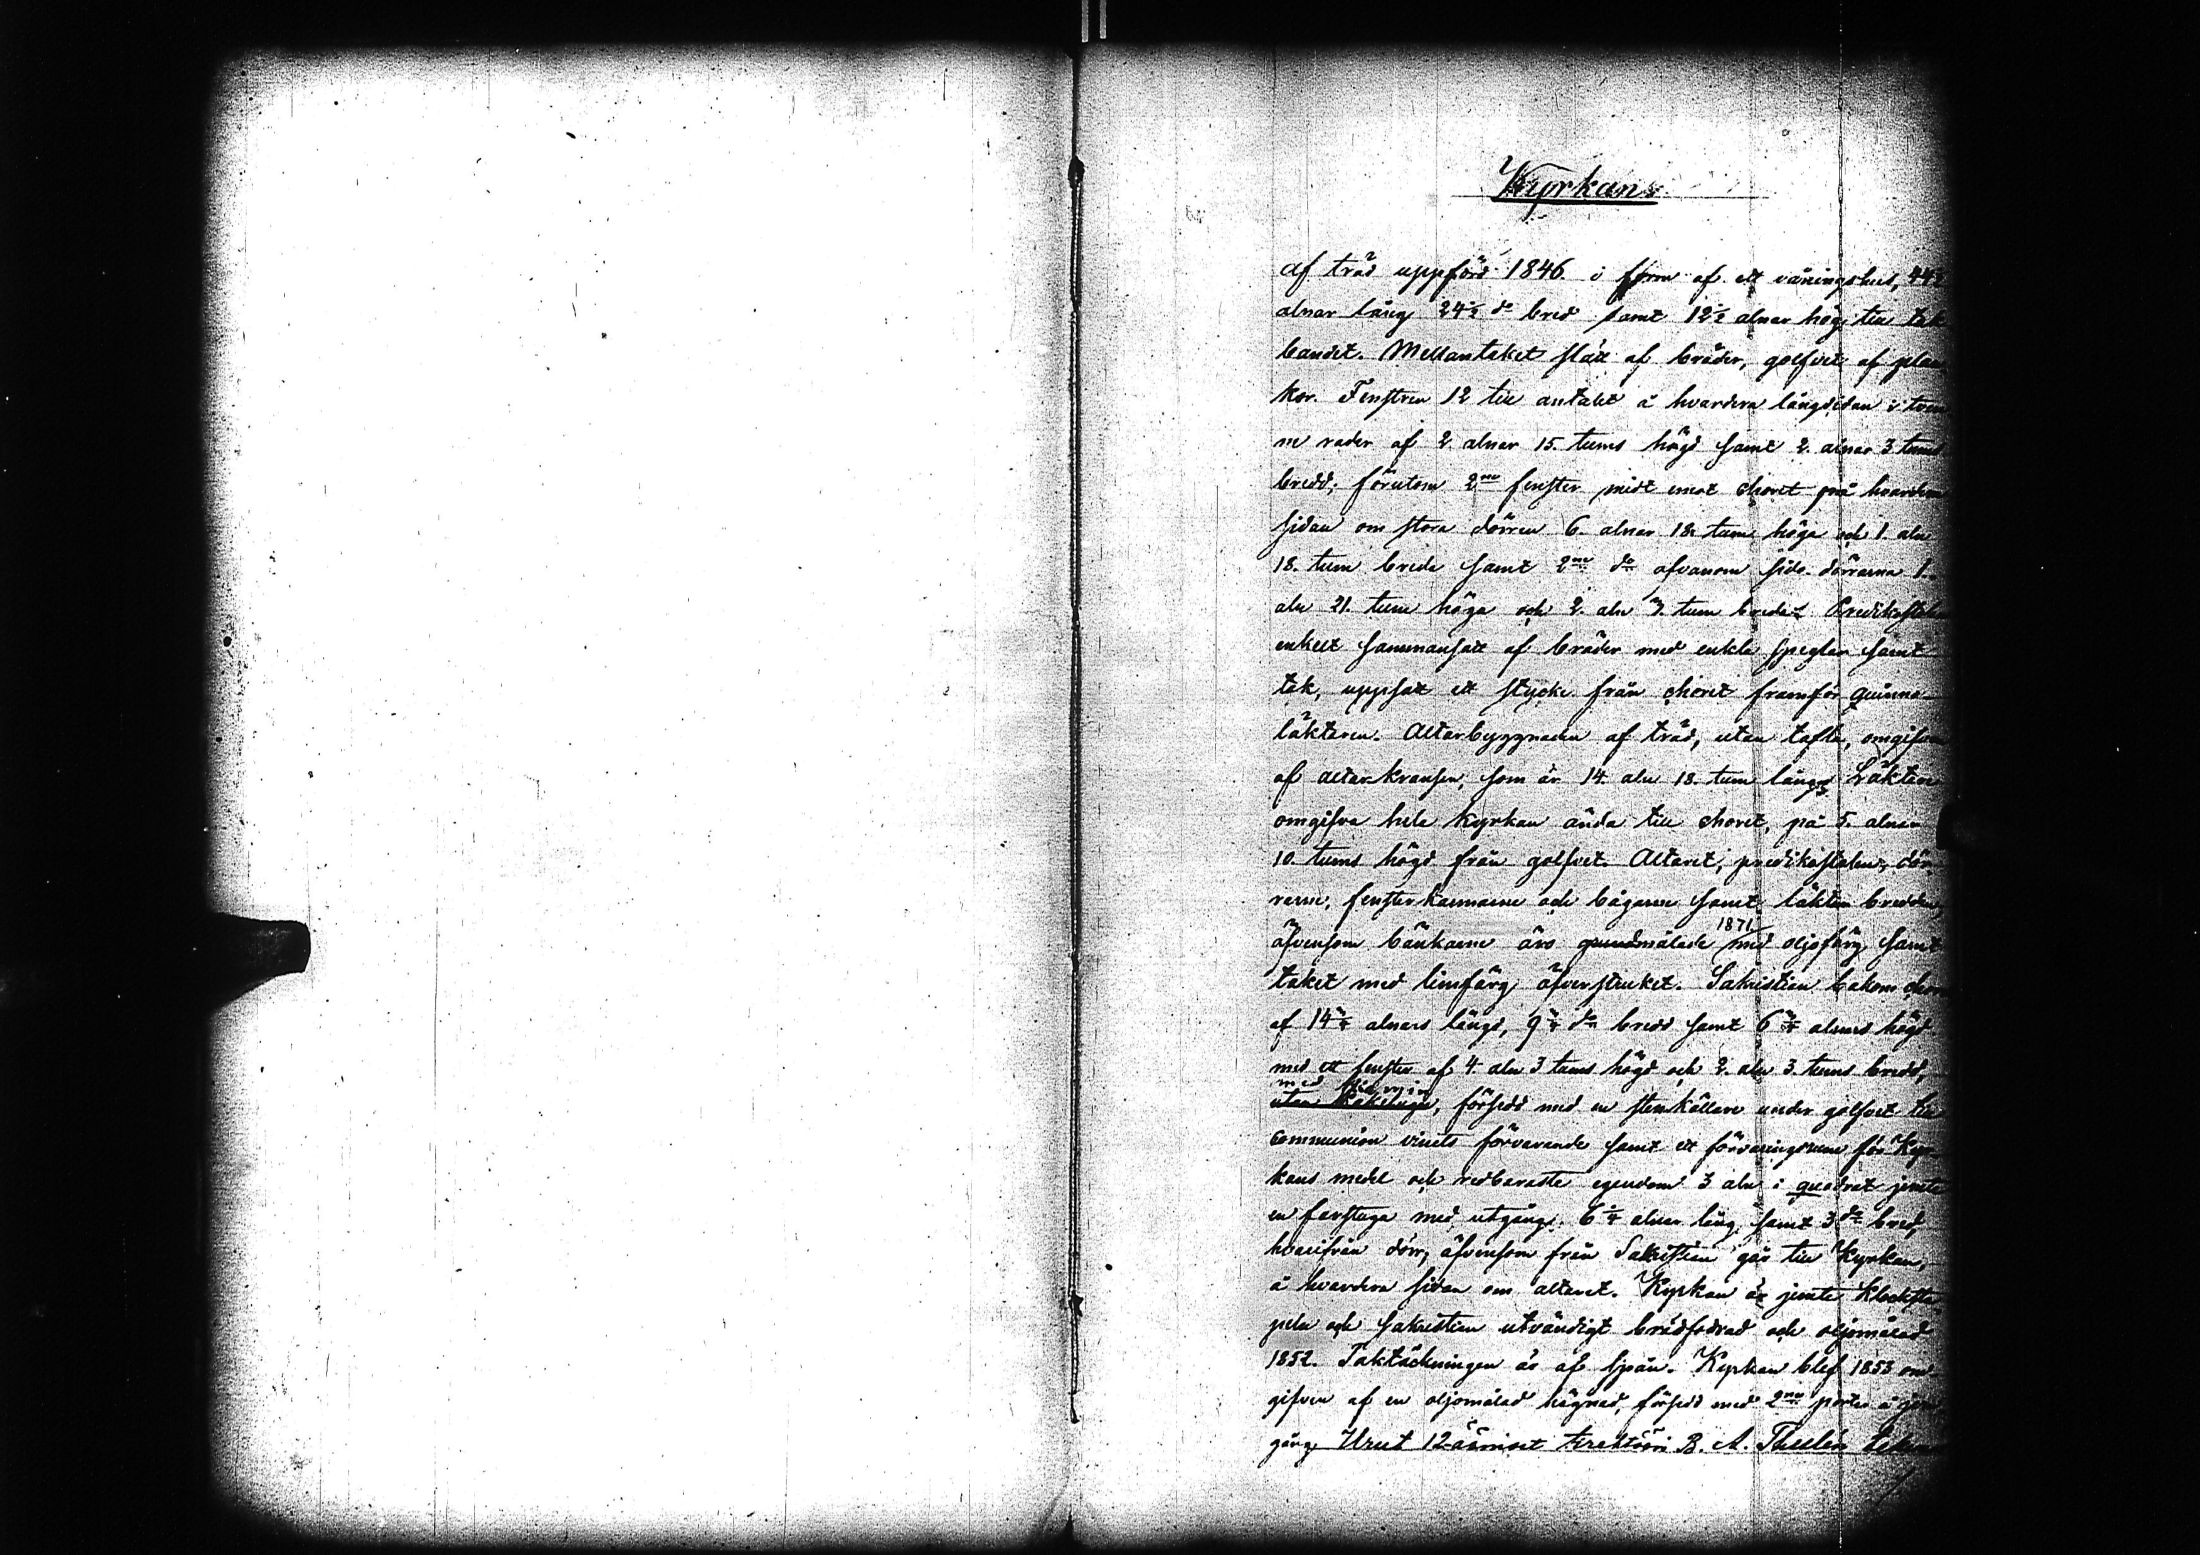 Kyrkans
af träd uppförd 1846. i form af ett våningshus, 44½
alnar lång 24½ do bred samt 12½ alnar hög till tak-
bandet. Mellantaket slätt af bräder, golfvet af plan-
kor. Fenstren 12 till antalet å hvardera långsidan i tven
ne rader af 2 alnar 15. tums höjd samt 2. alnar 3 tums
bredd; förutom 2ne fenster midt emot choret på hvardera
sidan om stora dörren 6. alnar 18. tum höga och 1. aln
18. tum breda samt 2ne do ofvanom sido-dörrarna 1.
aln 21. tum höga och 2. aln 3. tum breda. Predikstolen
enkelt sammansatt af bräder med enkla speglar samt
tak, uppsatt ett stycke från choret framför quinno-
läktaren. Altarbyggnaden af träd, utan tafla, omgifven
af altarkransen, som är 14. aln 18. tum lång. Läktare
omgifva hela Kyrkan ända till choret, på 5. alnar
10. tums höjd från golfvet. Altaret, predikstolen, dör-
rarne, fensterkarmarne och bågarne samt läktare bredden,
äfvensom bänkarne äro grundmålade 1871 med oljefärg samt
taket med limfärg öfverstruket. Sakristian bakom choret
af 14¾ alnars längd, 9¾ do bredd samt 6¾ alnars höjd
med ett fenster af 4. aln 3 tums höjd och 2. aln 3. tums bredd,
med
utan Kakelugn, försedd med en stenkällare under golfvet till
communion vinets förvarande samt ett förvaringsrum för Kyr-
kans medel och redbaraste egendom 3 aln i quadrat jemte
en farstuga med utgång. 6¼ alnar lång samt 3 do bred,
hvarifrån dörr, äfvensom från Sakristian går till Kyrkan,
å hvardera sidan om altaret. Kyrkan är jemte Klocksta-
peln och sakristian utvändigt brädfodrad och oljemålad
1852. Taktäckningen är af spån. Kyrkan blef 1853 om-
gifven af en oljomålad hägnad, försedd med 2ne portar å
gång. Urut 12 ääniset B. A. Thulén